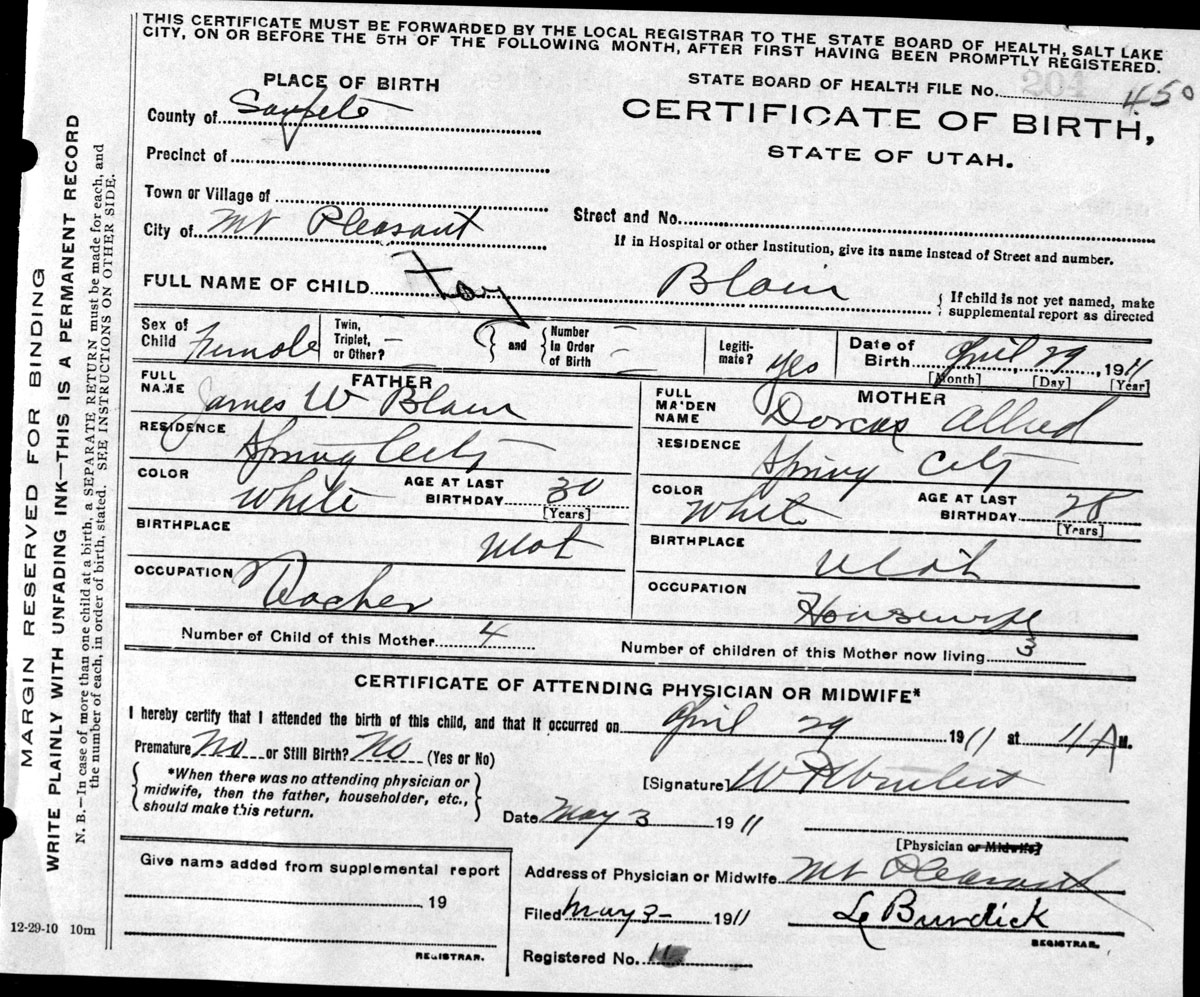 THIS CERTIFICATE MUST BE FORWARDED BY THE LOCAL REGISTRAR TO THE STATE BOARD OF HEALTH, SALT LAKE
CITY, ON OR BEFORE THE 5TH OF THE FOLLOWING MONTH, AFTER FIRST HAVING BEEN PROMPTLY REGISTERED.
MARGIN RESERVED FOR BINDING
WRITE PLAINLY WITH UNFADING INK—THIS IS A PERMANENT RECORD
N. B.—In case of more than one child at a birth, a SEPARATE RETURN must be made for each, and
the number of each, in order of birth, stated. SEE INSTRUCTIONS ON OTHER SIDE.
PLACE OF BIRTH
STATE BOARD OF HEALTH FILE No. 450
204
County of Sanpete
CERTIFICATE OF BIRTH,
STATE OF UTAH.
Precinct of
Town or Village of
Street and No.
City of Mt Pleasant
If in Hospital or other Institution, give its name instead of Street and number.
FULL NAME OF CHILD Fay Blain
{ If child is not yet named, make
supplemental report as directed
Sex of Child Female
Twin, Triplet, or Other? —
and
Number in Order of Birth —
Legiti-mate? Yes
Date of Birth April 29, 1911
[Month] [Day] [Year]
FATHER
FULL NAME James W Blain
MOTHER
FULL MAIDEN NAME Dorcas Allred
RESIDENCE Spring City
RESIDENCE Spring City
COLOR White
AGE AT LAST BIRTHDAY 30 [Years]
COLOR White
AGE AT LAST BIRTHDAY 28 [Years]
BIRTHPLACE Utah
BIRTHPLACE Utah
OCCUPATION Teacher
OCCUPATION Housewife
Number of Child of this Mother 4
Number of children of this Mother now living 3
CERTIFICATE OF ATTENDING PHYSICIAN OR MIDWIFE*
I hereby certify that I attended the birth of this child, and that it occurred on April 29 1911 at A M.
Premature No or Still Birth? No (Yes or No)
*When there was no attending physician or
midwife, then the father, householder, etc.,
should make this return.
[Signature]
Date May 3 1911
[Physician or Midwife]
Give name added from supplemental report
19
REGISTRAR.
Address of Physician or Midwife Mt Pleasant
Filed May 3- 1911
Burdick
REGISTRAR.
Registered No. 11
12-29-10 10m